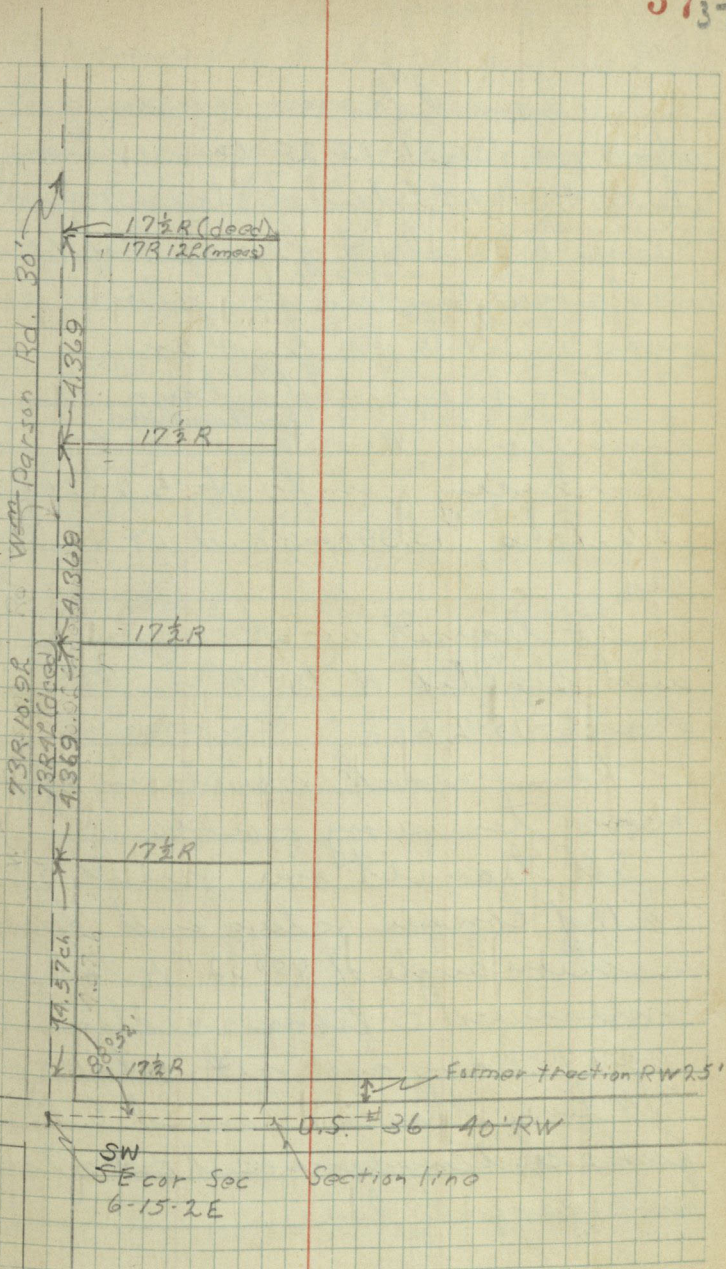 17½R (deed)
17R 12L (meas)
Wm Parson Rd. 30'
4.369
17½R
4.369
17½R
73R 10.9L
73R4L (deed)
4.369
17½R
4.57ch
88°52'
17½R
Former traction RW 25'
U.S. # 36 40' RW
SW
SE cor Sec
6-15-2E
Section line